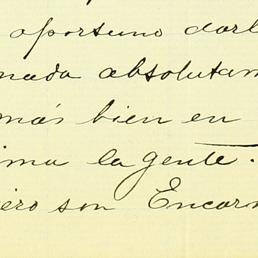 oportuno darl
nada absolutam
más bien en
ima la gente.
ero son Encar